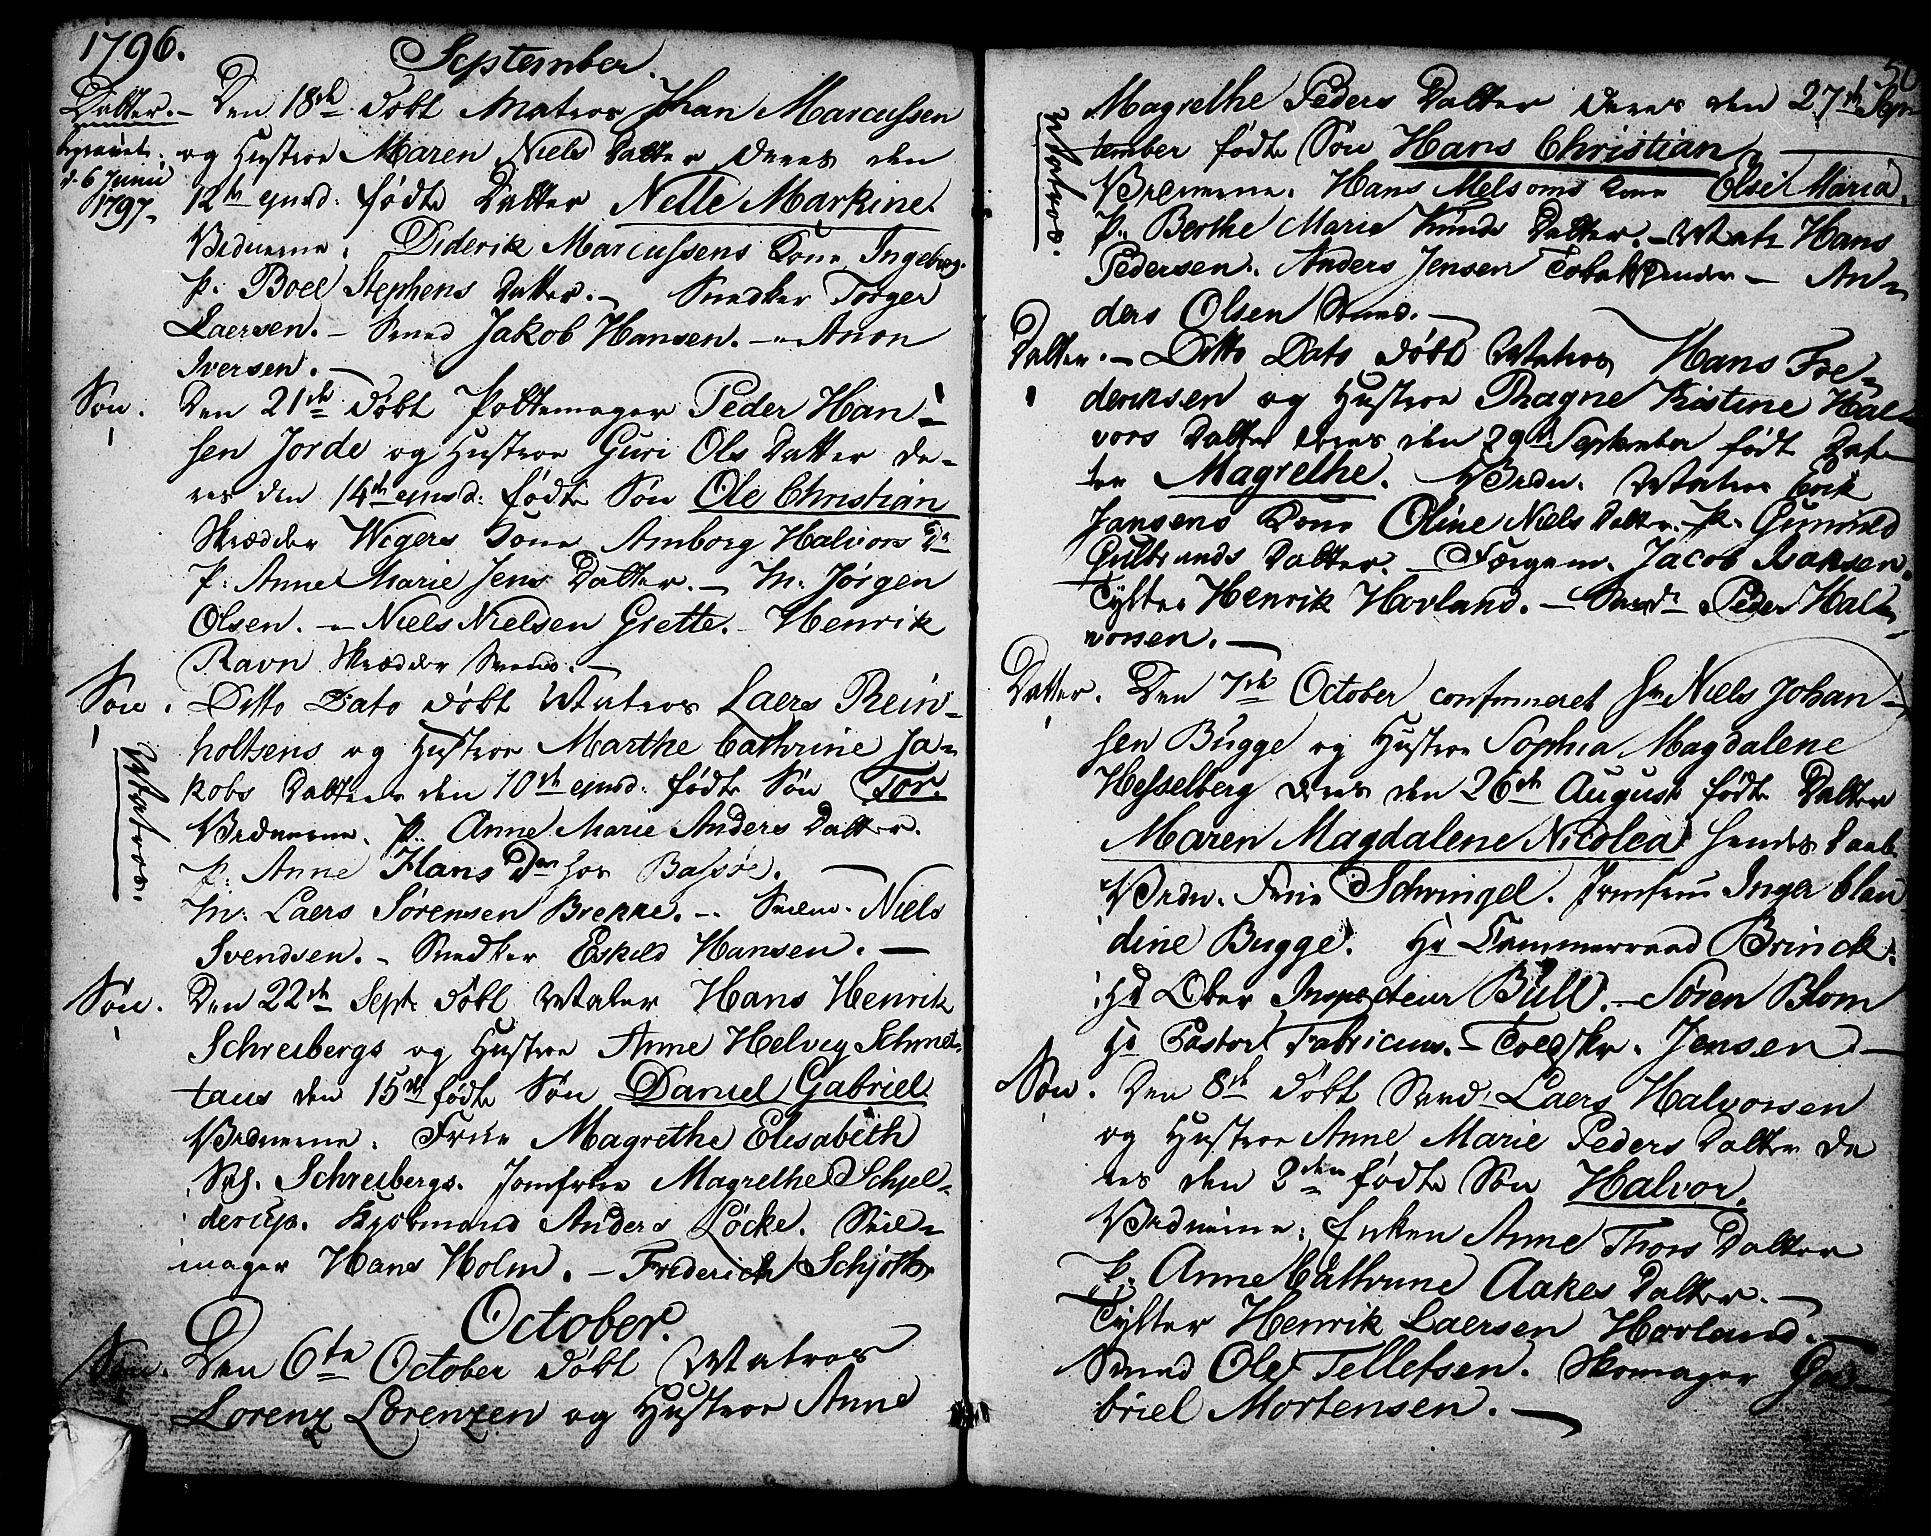 1796.
September.
Datter. – Den 18de Døbt Matros Johan Marcussen
begravet
d. 6 Junii
1797.
og Hustroe Maren Niels Datter deres den
12te ejusd: fødte Datter Nelle Markine.
Vidnerne. Diderik Marcussens Kone, Ingeborg.
P. Boel Stephens Datter. – Snedker Torger
Laersen. – Smed Jakob Hansen. – Aron
Iversen. –
Søn. Den 21de Døbt Pottemager Peder Han-
sen Jorde og Hustroe Guri Ols Datter de-
res den 14de ejusd: fødte Søn Ole Christian
Skrædder Wegers Kone Amborg Halvors D.
P. Anne Marie Jens Datter. – M. Jørgen
Olsen. – Niels Nielsen Grette. – Henrik
Ravn Skrædder Svend. –
Søn. Ditto Dato Døbt Matros Laers Rein-
holtsens og Hustroe Marthe Cathrine Ja-
kobs Datters den 10de ejusd: fødte Søn Tor.
Matros.
Vidnerne. P. Anne Marie Anders Datter.
P. Anne Hans Dr. hos Bassøe. –
M. Laers Sørensen Brekke. – Niels
Svendsen. – Snedker Eskild Hansen. –
Søn. Den 22de Sept. Døbt Maler Hans Henrik
Schreibergs og Hustroe Anne Helvig Schmet-
taus den 15de fødte Søn Daniel Gabriel
Vidnerne. Frue Magrethe Elisabeth
Sal. Schreibergs. Jomfrue Magrethe Schjel-
derup. Kjøbmand Anders Løcke. Seil-
mager Hans Holm. – Frederich Schjøtt
October.
Søn. Den 6te October Døbt Matros
Lorenz Lorenzen og Hustroe Anne
50
Magrethe Peders Datter deres den 27de Sep-
tember fødte Søn Hans Christian
Matros.
Vidnerne. Hans Melsoms Kone Else Maria.
P. Berthe Marie Knuds Datter. – Matr. Hans
Pedersen. Anders Jensen Tobakspinder – An-
ders Olsen Smed. –
Datter. – Ditto Dato Døbt Matros Hans Fre-
deriksen og Hustroe Ragne Kistine Hal-
vors Datter deres den 29de September fødte Dat-
ter Magrethe. Vidn. Matros Erik
Jansens Kone Oline Niels Datter. P. Gunnild
Gulbrands Datter. – Færgem. Jacob Isaksen.
Tylter Henrik Hovland. – Smed Peder Hal-
vorsen. –
Datter. Den 7de October confirmeret Hr Niels Johan-
sen Bugge og Hustroe Sophia Magdalene
Hesselberg deres den 26de August fødte Datter
Maren Magdalene Nicolea hendes Daab.
Vidn. Frue Schwingel. Jomfrue Inger Clau-
dine Bugge. Hr Cammerraad Brinck.
Hr Ober Inspecteur Bull. – Søren Blom
Hr Pastor Fabricius. – Jensen –
Søn. Den 8de Døbt Smed Laers Halvorsen
og Hustroe Anne Marie Peders Datter de
res den 2den fødte Søn Halvor.
Vidnerne. Enken Anne Thors Datter
P. Anne Cathrine Aakes Datter. –
Tylter Henrik Laersen Hovland. –
Smed Ole Tellefsen. Skomager Ga-
briel Mortensen. –